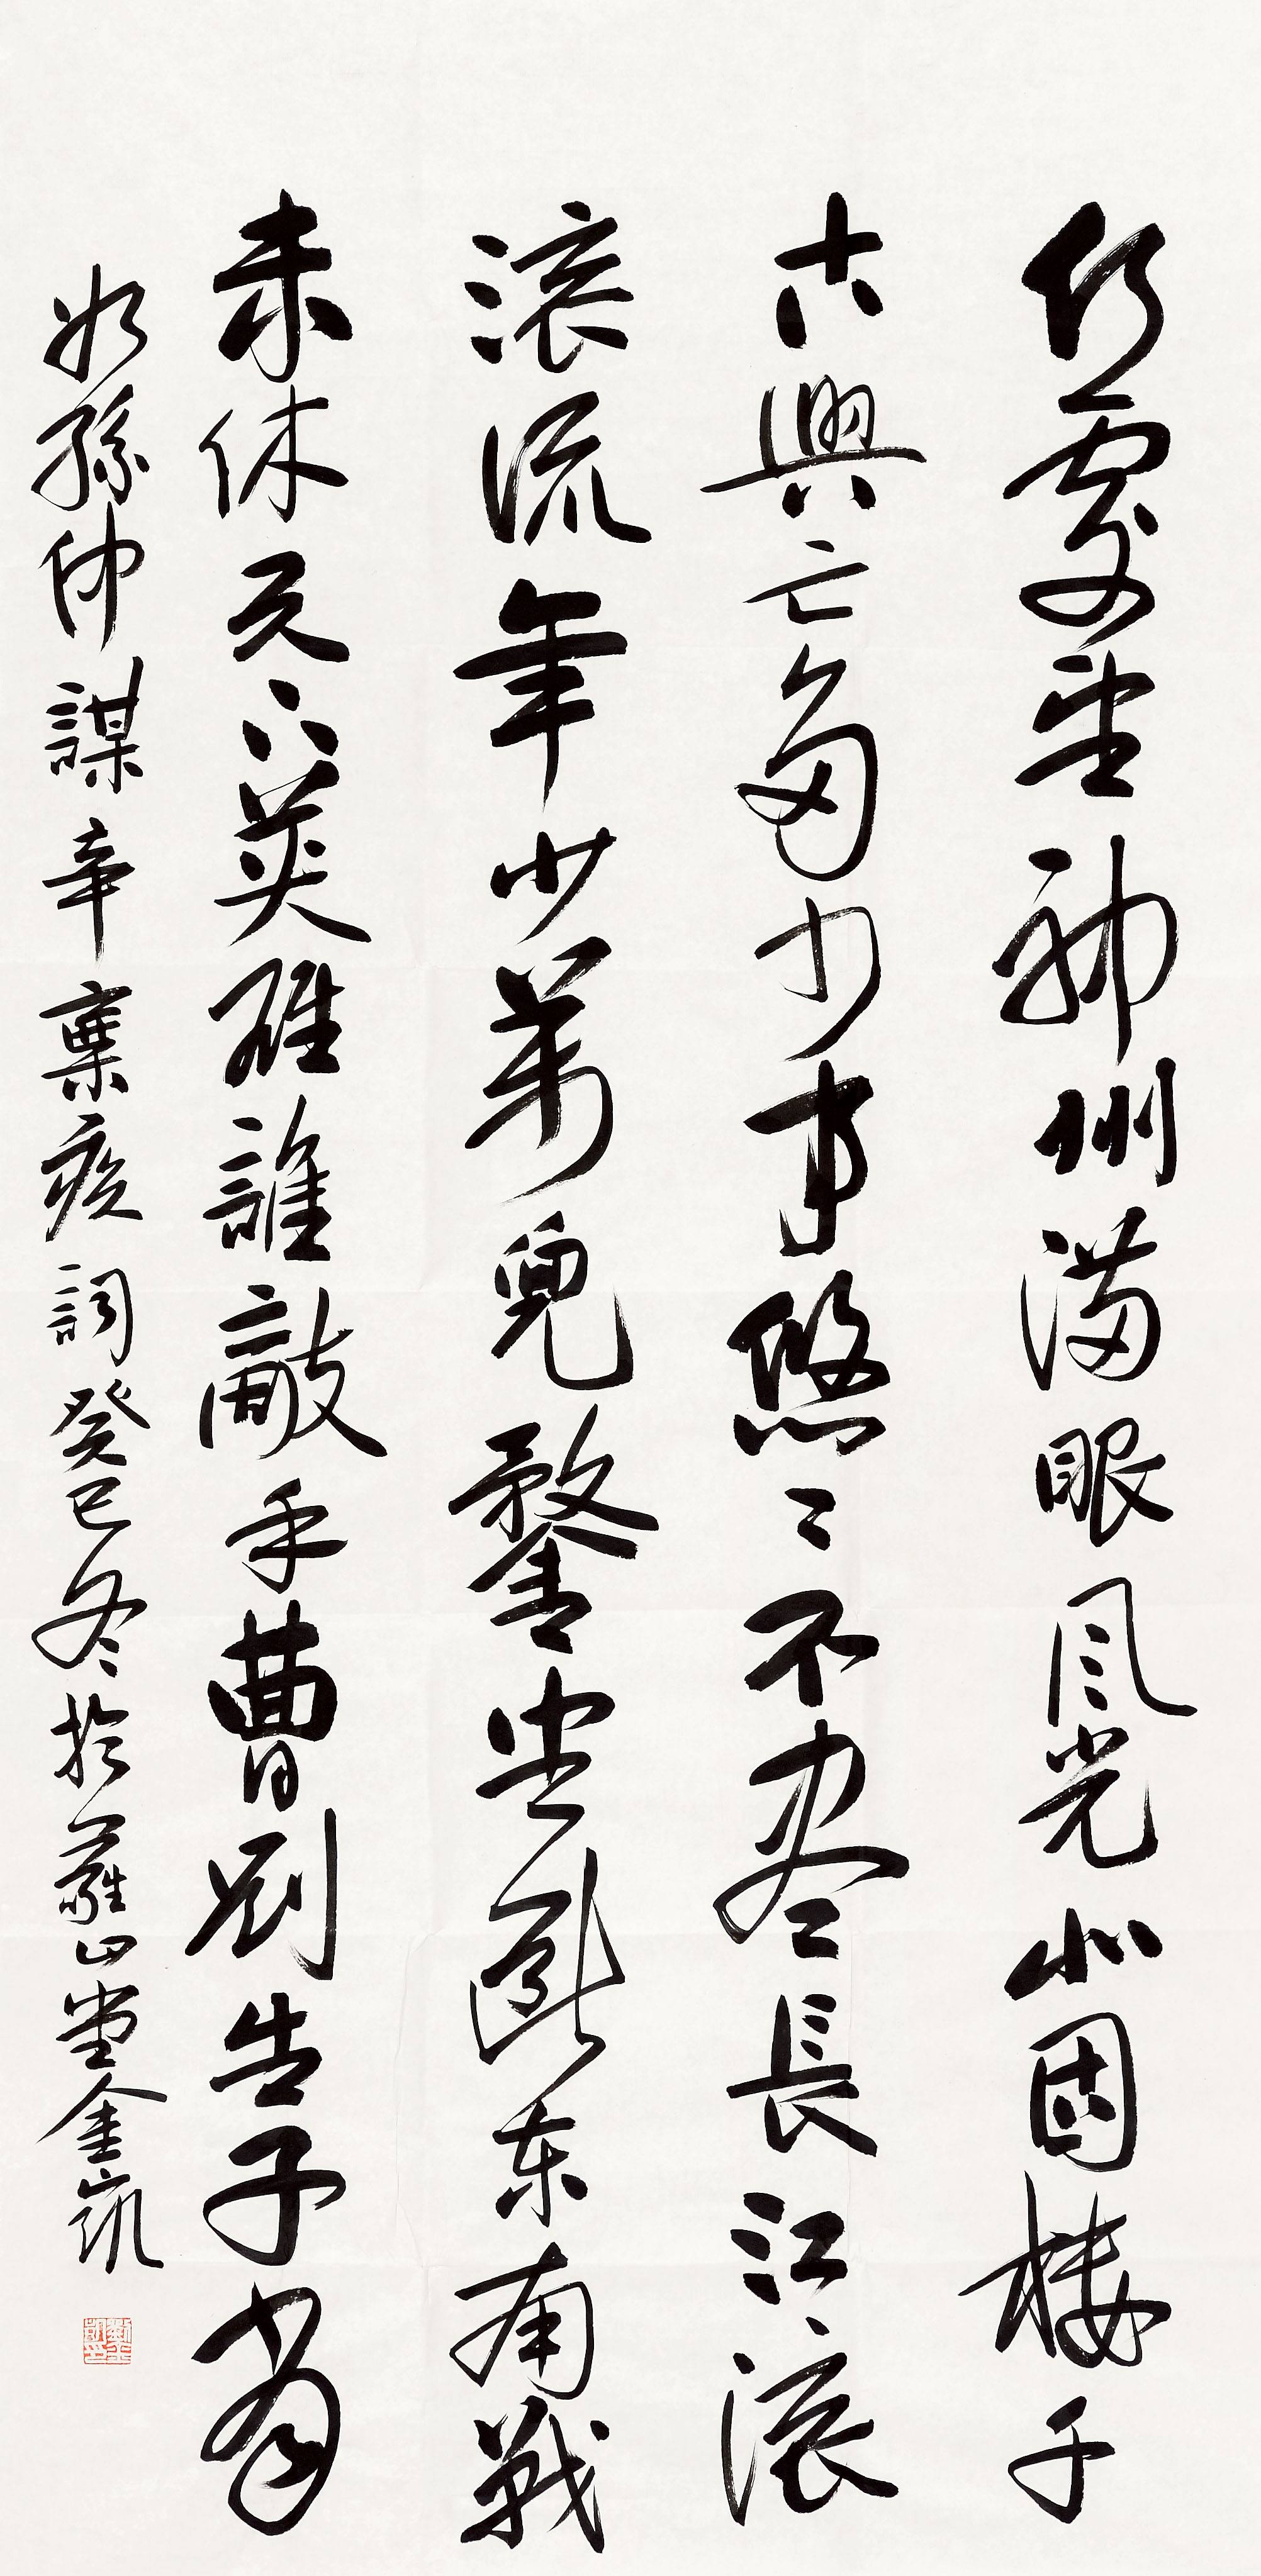 何處望神州滿眼風光北固樓千
古興亡多少事悠〻不盡長江滾
滾流年少萬兜鍪坐斷東南戰
未休天下英雄誰敵手曹劉生子當
如孫仲謀辛棄疾詞癸巳冬於蘿山堂金凱